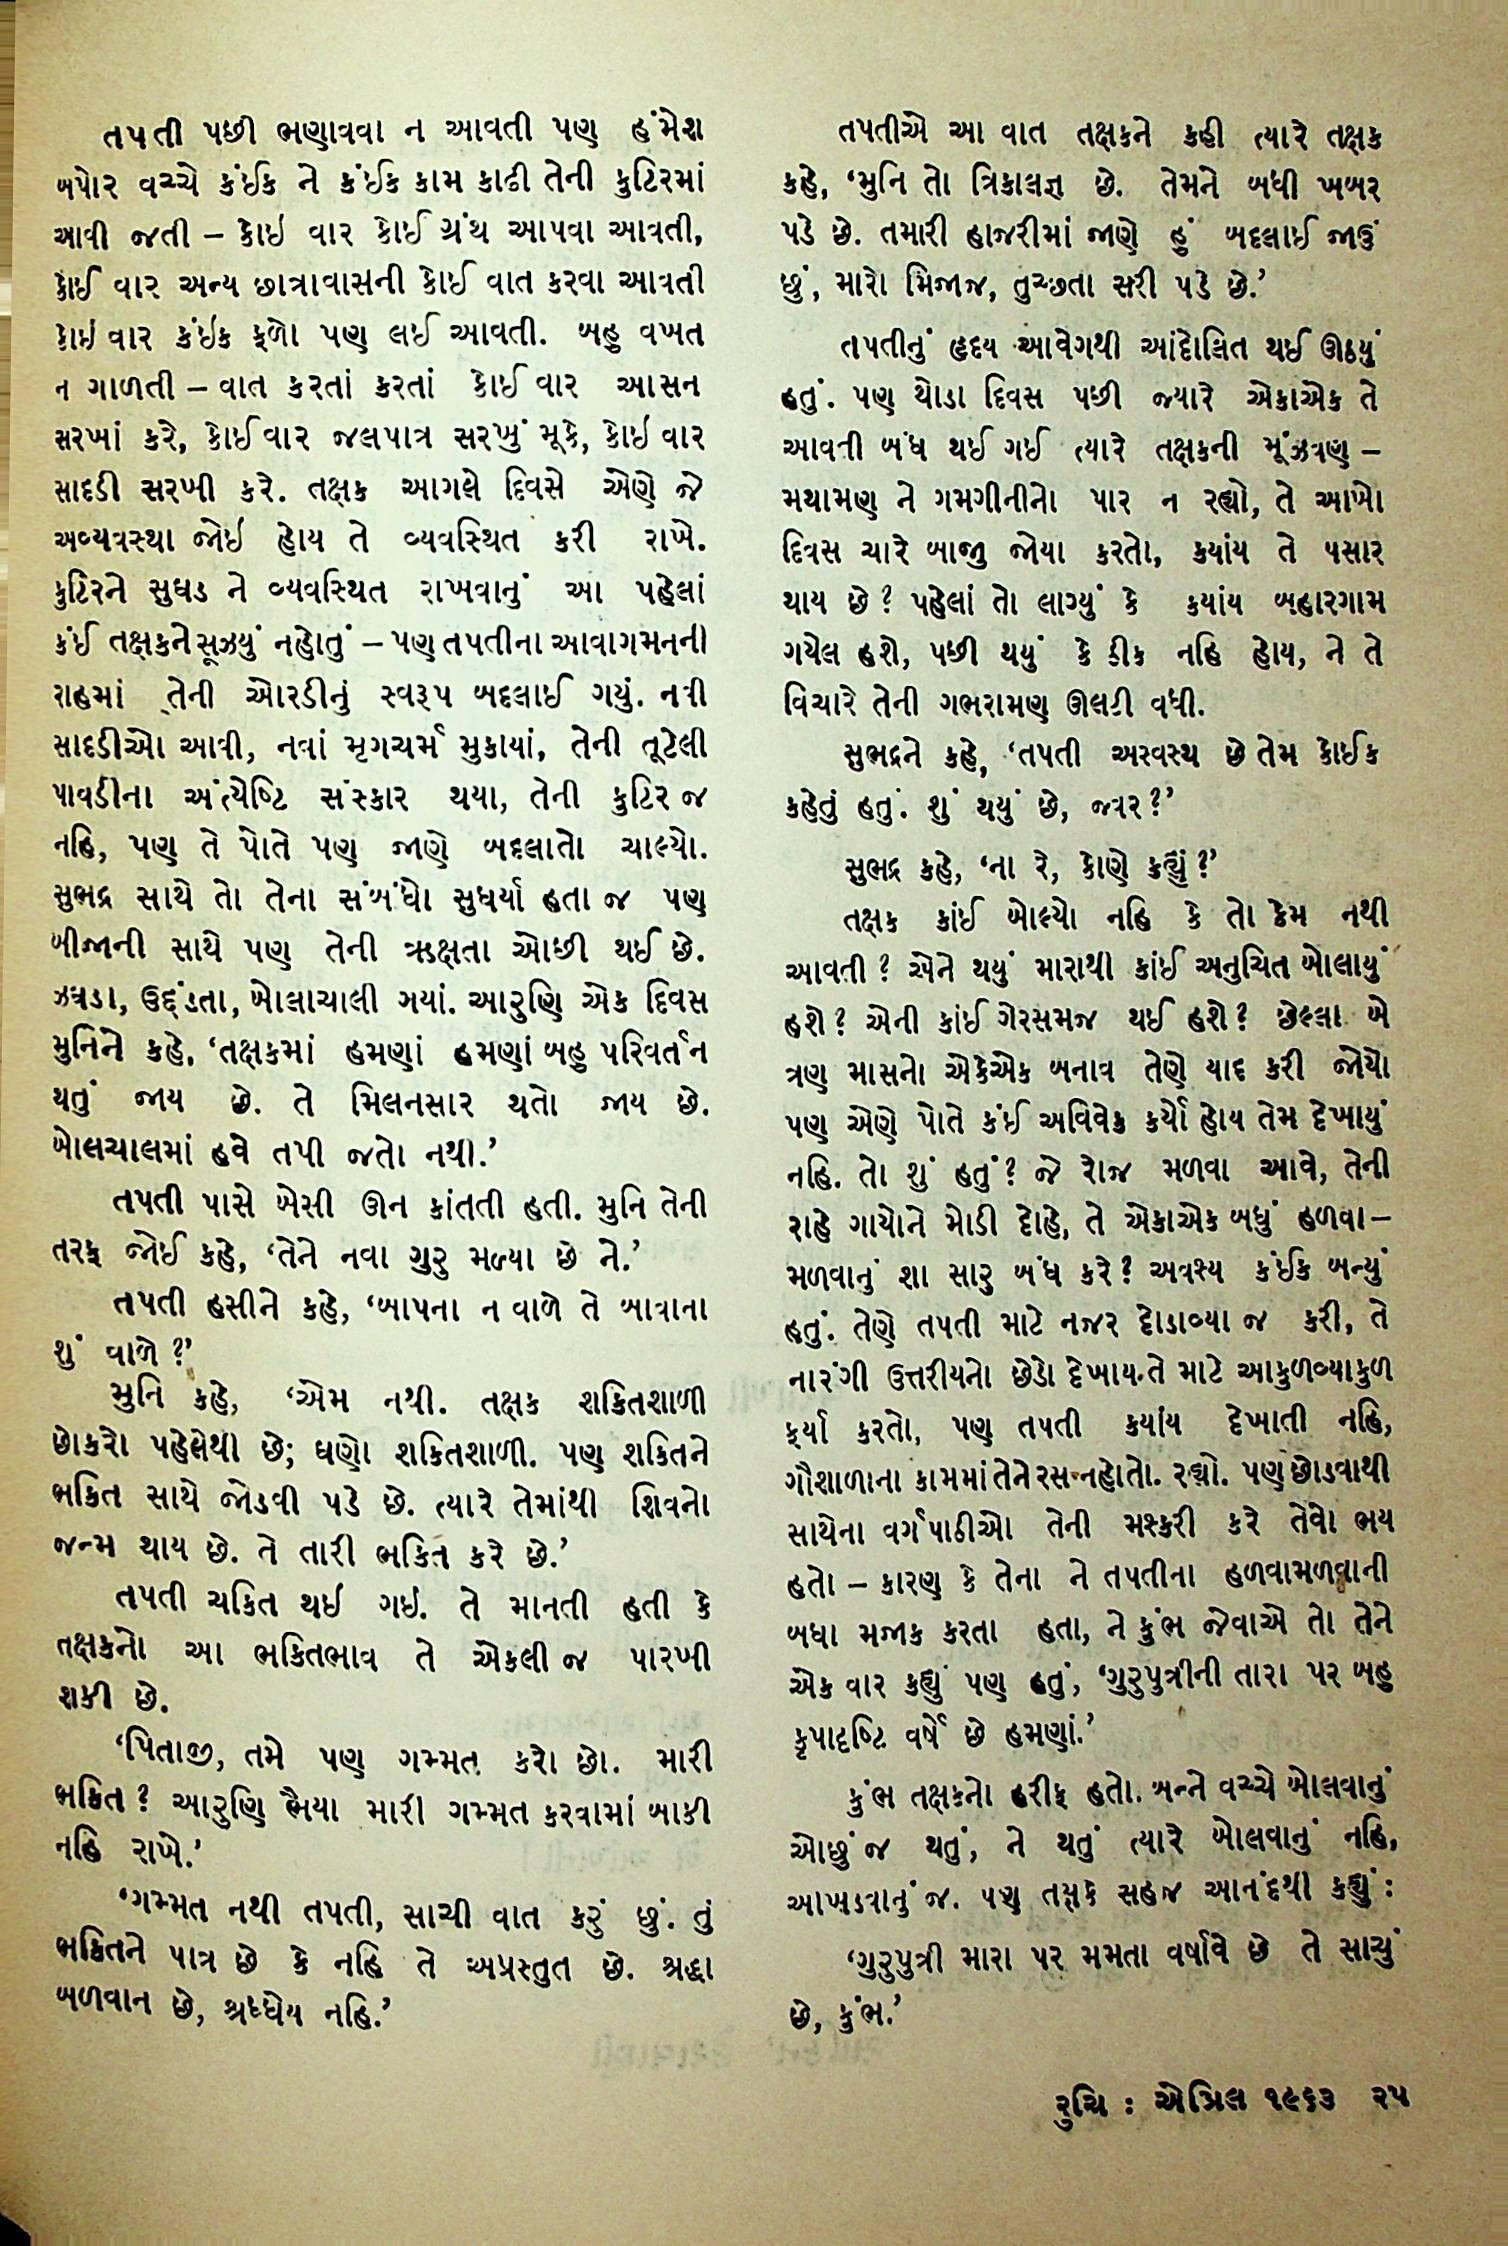 તપતી પછી ભણાવવા ન આવતી પણ હંમેશ
બપોર વચ્ચે કંઈક ને કંઈક કામ કાઢી તેની કુટિરમાં
આવી જતી – કોઈ વાર કોઈ ગ્રંથ આપવા આવતી,
કોઈ વાર અન્ય છાત્રાવાસની કોઈ વાત કરવા આવતી
કોઈ વાર કંઇક ફળો પણ લઈ આવતી. બહુ વખત
ન ગાળતી – વાત કરતાં કરતાં કોઈ વાર આસન
સરખાં કરે, કોઈ વાર જલપાત્ર સરખું મૂકે, કોઇ વાર
સાદડી સરખી કરે. તક્ષક આગલે દિવસે એણે જે
અવ્યવસ્થા જોઇ હોય તે વ્યવસ્થિત કરી રાખે.
કુટિરને સુઘડ ને વ્યવસ્થિત રાખવાનું આ પહેલાં
કંઈ તક્ષકને સૂઝયું નહોતું – પણ તપતીના આવાગમનની
રાહમાં તેની ઓરડીનું સ્વરૂપ બદલાઈ ગયું. નવી
સાદડીઓ આવી, નવાં મૃગચર્મ મુકાયાં, તેની તૂટેલી
પાવડીના અંત્યેષ્ટિ સંસ્કાર થયા, તેની કુટિર જ
નહિ, પણ તે પોતે પણ જાણે બદલાતો ચાલ્યો.
સુભદ્ર સાથે તો તેના સંબંધો સુધર્યા હતા જ પણ
બીજાની સાથે પણ તેની ઋક્ષતા ઓછી થઈ છે.
ઝઘડા, ઉદ્દંડતા, બોલાચાલી ગયાં. આરુણિ એક દિવસ
મુનિને કહે, ‘તક્ષકમાં હમણાં હમણાં બહુ પરિવર્તન
થતું જાય છે. તે મિલનસાર થતો જાય છે.
બોલચાલમાં હવે તપી જતો નથી.’
તપતી પાસે બેસી ઊન કાંતતી હતી. મુનિ તેની
તરફ જોઈ કહે, ‘તેને નવા ગુરુ મળ્યા છે ને.’
તપતી હસીને કહે, ‘બાપના ન વાળે તે બાવાના
શું વાળે ?’
મુનિ કહે, ‘એમ નથી. તક્ષક શકિતશાળી
છોકરો પહેલેથી છે; ઘણો શકિતશાળી. પણ શકિતને
ભકિત સાથે જોડવી પડે છે. ત્યારે તેમાંથી શિવનો
જન્મ થાય છે. તે તારી ભકિત કરે છે.’
તપતી ચકિત થઈ ગઇ. તે માનતી હતી કે
તક્ષકનો આ ભકિતભાવ તે એકલી જ પારખી
શકી છે.
‘પિતાજી, તમે પણ ગમ્મત કરો છો. મારી
ભકિત ? આરુણિ ભૈયા મારી ગમ્મત કરવામાં બાકી
નહિ રાખે.’
‘ગમ્મત નથી તપતી, સાચી વાત કરું છું. તું
ભકિતને પાત્ર છે કે નહિ તે અપ્રસ્તુત છે. શ્રદ્ધા
બળવાન છે, શ્રધ્ધેય નહિ.’
તપતીએ આ વાત તક્ષકને કહી ત્યારે તક્ષક
કહે, ‘મુનિ તો ત્રિકાલજ્ઞ છે. તેમને બધી ખબર
પડે છે. તમારી હાજરીમાં જાણે હું બદલાઈ જાઉં
છું, મારો મિજાજ, તુચ્છતા સરી પડે છે.’
તપતીનું હૃદય આવેગથી આંદોલિત થઈ ઊઠયું
હતું. પણ થોડા દિવસ પછી જ્યારે એકાએક તે
આવતી બંધ થઈ ગઈ ત્યારે તક્ષકની મૂંઝવણ –
મથામણ ને ગમગીનીનો પાર ન રહ્યો, તે આખો
દિવસ ચારે બાજુ જોયા કરતો, કયાંય તે પસાર
થાય છે ? પહેલાં તો લાગ્યું કે કયાંય બહારગામ
ગયેલ હશે, પછી થયું કે ઠીક નહિ હોય, ને તે
વિચારે તેની ગભરામણ ઊલટી વધી.
સુભદ્રને કહે, ‘તપતી અસ્વસ્થ છે તેમ કોઈક
કહેતું હતું. શું થયું છે, જ્વર ?’
સુભદ્ર કહે, ‘ના રે, કોણે કહ્યું ?’
તક્ષક કાંઈ બોલ્યો નહિ કે તો કેમ નથી
આવતી ? એને થયું મારાથી કાંઈ અનુચિત બોલાયું
હશે ? એની કાંઈ ગેરસમજ થઈ હશે ? છેલ્લા બે
ત્રણ માસનો એકેએક બનાવ તેણે યાદ કરી જોયો
પણ એણે પોતે કંઈ અવિવેક કર્યો હોય તેમ દેખાયું
નહિ. તો શું હતું ? જે રોજ મળવા આવે, તેની
રાહે ગાયોને મોડી દોહે, તે એકાએક બધું હળવા –
મળવાનું શા સારુ બંધ કરે ? અવશ્ય કંઈક બન્યું
હતું. તેણે તપતી માટે નજર દોડાવ્યા જ કરી, તે
નારંગી ઉત્તરીયનો છેડો દેખાય તે માટે આકુળવ્યાકુળ
ફર્યા કરતો, પણ તપતી કયાંય દેખાતી નહિ,
ગૌશાળાના કામમાં તેને રસ નહોતો. રહ્યો. પણ છોડવાથી
સાથેના વર્ગપાઠીઓ તેની મશ્કરી કરે તેવો ભય
હતો – કારણ કે તેના ને તપતીના હળવામળવાની
બધા મજાક કરતા હતા, ને કુંભ જેવાએ તો તેને
એક વાર કહ્યું પણ હતું, ‘ગુરુપુત્રીની તારા પર બહુ
કૃપાદૃષ્ટિ વર્ષે છે હમણાં.’
કુંભ તક્ષકનો હરીફ હતો. બન્ને વચ્ચે બોલવાનું
ઓછું જ થતું, ને થતું ત્યારે બોલવાનું નહિ,
આખડવાનું જ. પણ તક્ષકે સહજ આનંદથી કહ્યું :
‘ગુરુપુત્રી મારા પર મમતા વર્ષાવે છે તે સાચું
છે, કુંભ.’
રુચિ : એપ્રિલ ૧૯૬૩ ૨૫